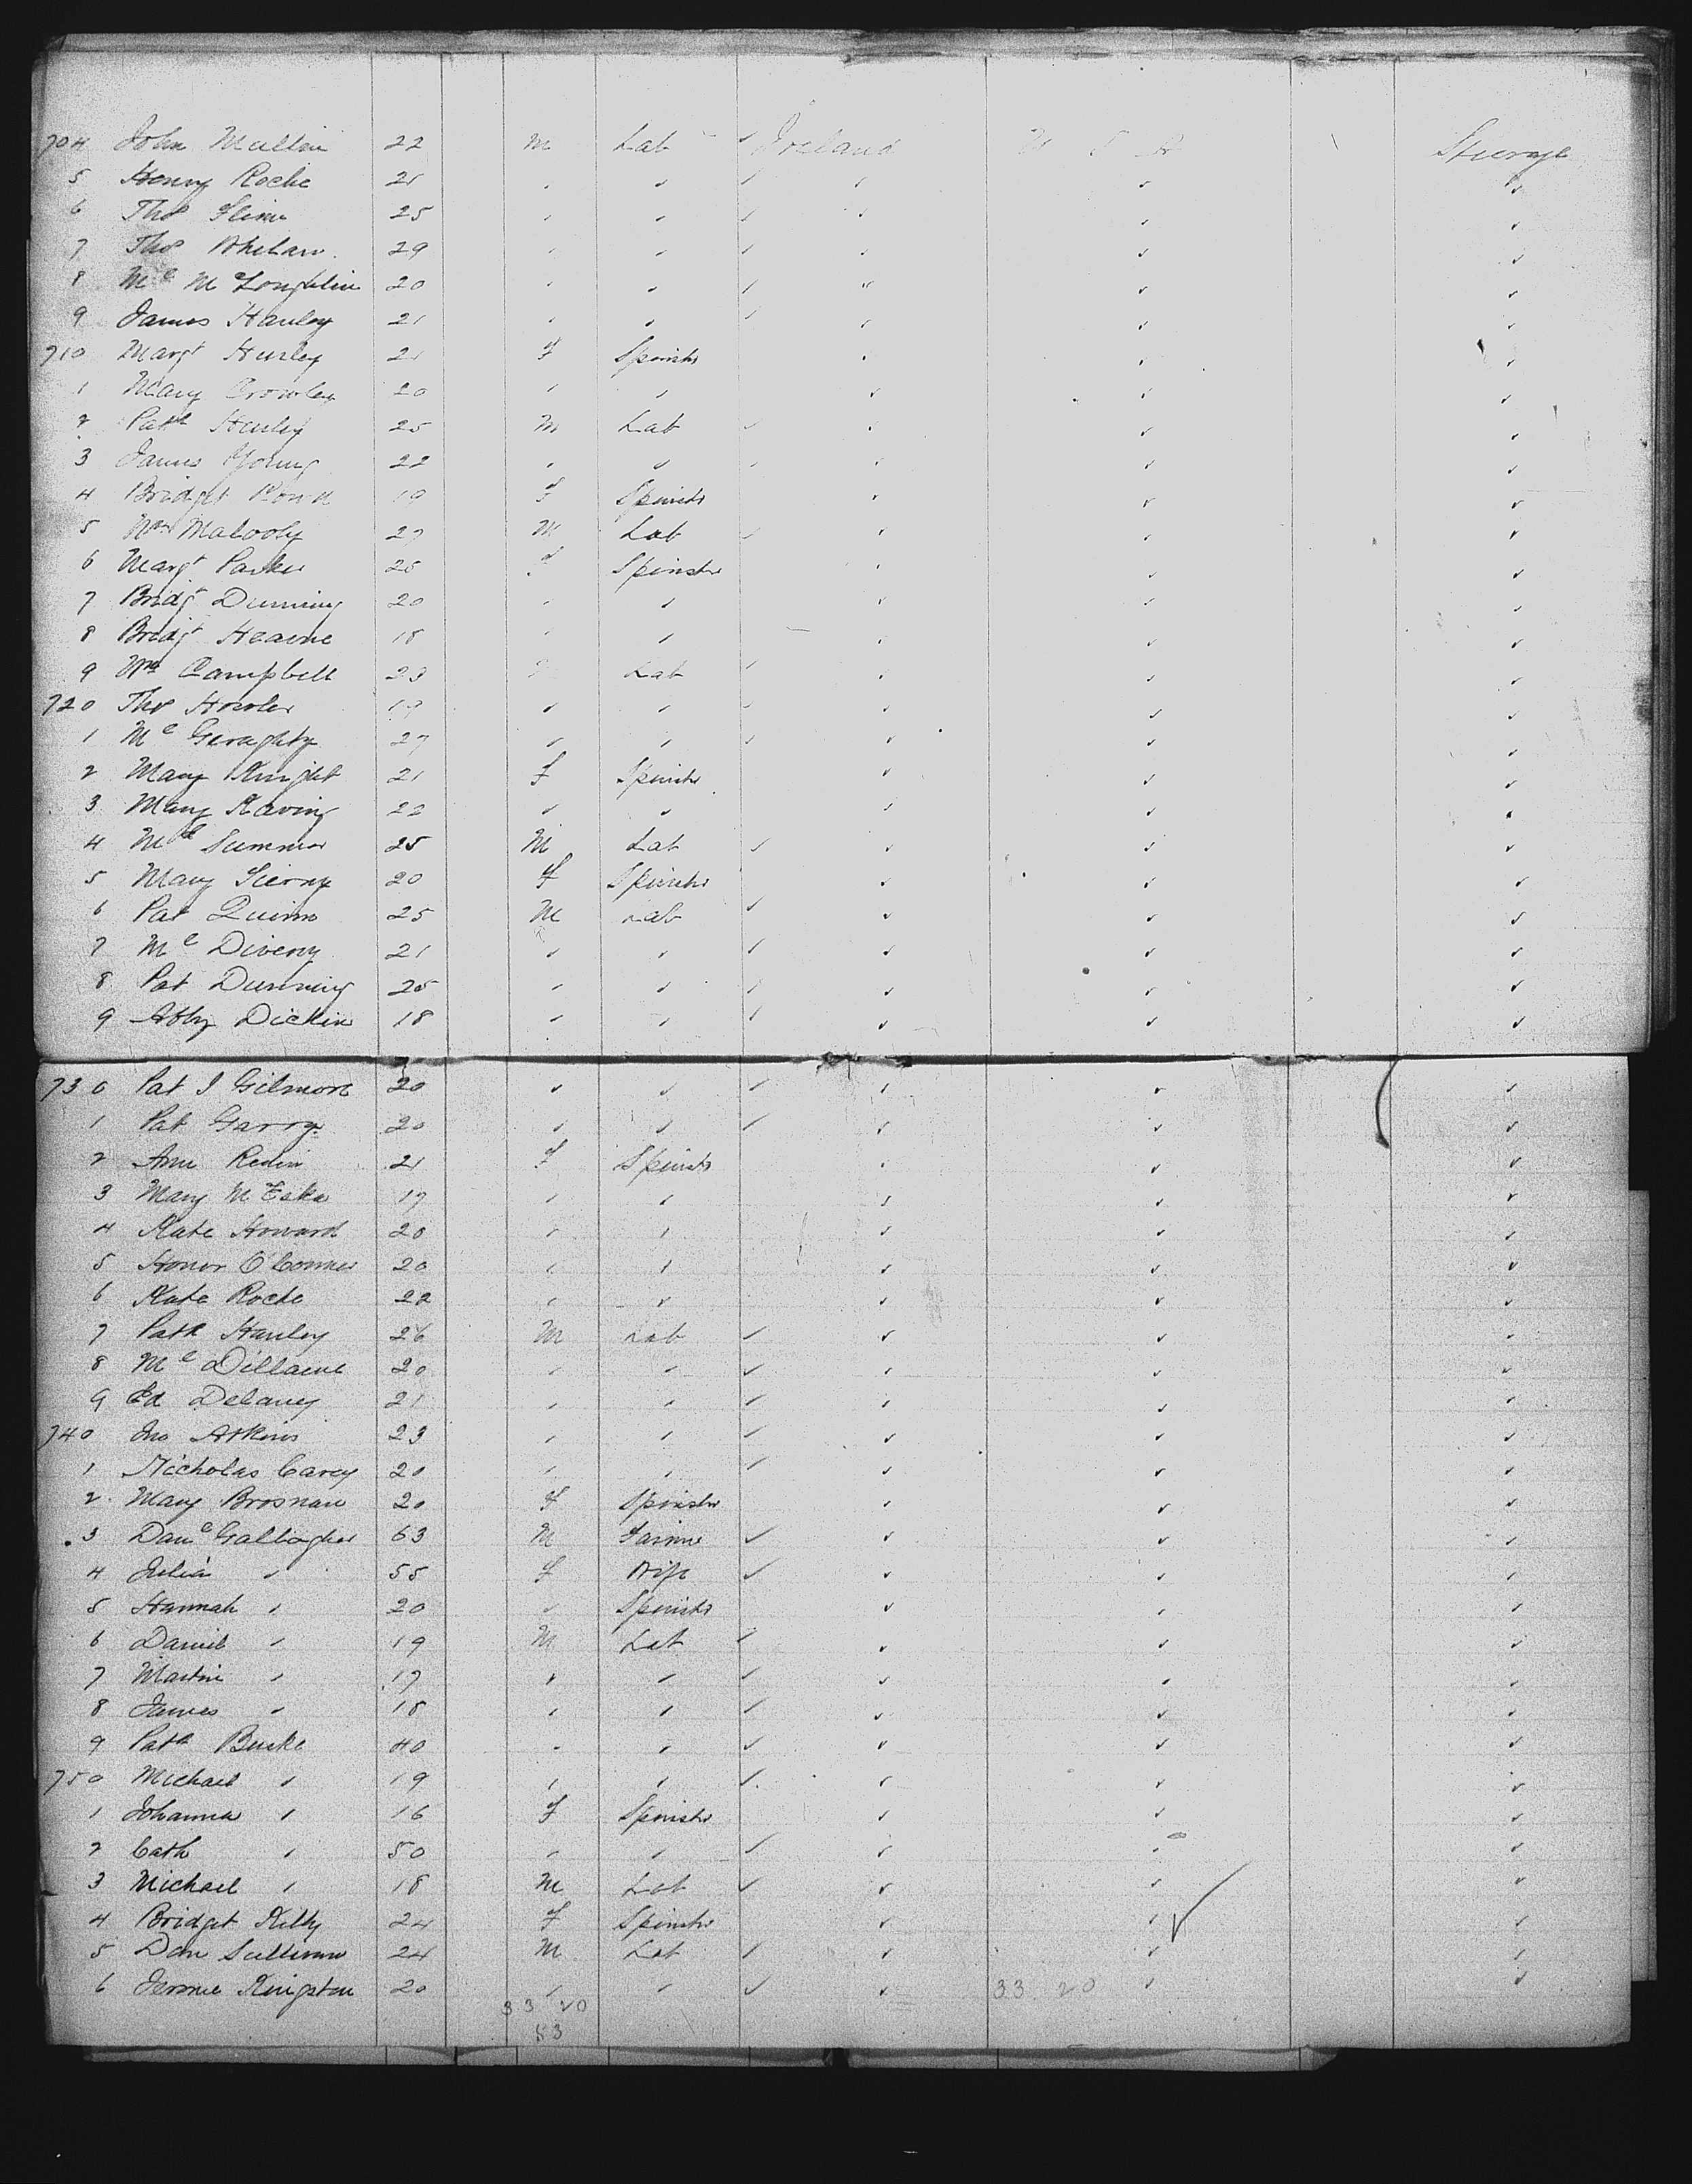 704 John Mullin 22 M Lab ✓ Ireland U S A Steerage
5 Henry Roche 21 " " ✓ " " "
6 Thos 25 " " ✓ " " "
7 Thos Whelan 29 " " ✓ " " "
8 Ml McLoughlin 20 " " ✓ " " "
9 James Hanley 21 " " ✓ " " "
710 Margt Hurley 21 F Spinstr " " "
1 Mary Crowley 20 " " " " "
2 Patk Hurley 25 M Lab ✓ " " "
3 James Young 22 " " ✓ " " "
4 Bridget 19 F Spinstr " " "
5 Wm Malooly M Lab ✓ " " "
6 Margt Parker F Spinstr " " "
7 Bridgt Dunning 20 " " " " "
8 Bridgt Hearne 18 " " " " "
9 Wm Campbell 23 Lab ✓ " " "
720 Thos 19 " " ✓ " " "
1 Ml Geraghty 27 " " ✓ " " "
2 Mary Knight 21 F Spinstr " " "
3 Mary 22 " " " " "
4 Ml Summer 25 M Lab ✓ " " "
5 Mary 20 F Spinstr " " "
6 Pat Quinn 25 M Lab ✓ " " "
7 Ml Diveny 21 " " ✓ " " "
8 Pat Dunning 25 " " ✓ " " "
9 Abby Dickin 18 " " ✓ " " "
730 Pat J Gilmore 20 " " ✓ " " "
1 Pat Garry 20 " " ✓ " " "
2 Ann 21 F Spinstr " " "
3 Mary 19 " " " " "
4 Kate Howard 20 " " " " "
5 Honor O'Connor 20 " " " " "
6 Kate Roche 22 " " " " "
7 Patk Hanley 26 M Lab ✓ " " "
8 Ml Dillane 20 " " ✓ " " "
9 Ed Delaney 21 " " ✓ " " "
740 Jno Atkins 23 " " ✓ " " "
1 Nicholas Carey 20 " " ✓ " " "
2 Mary Brosnan 20 F Spinstr " " "
3 Danl Gallagher 63 M Farmer ✓ " " "
4 Julia " 55 F Wife ✓ " " "
5 Hannah " 20 " Spinstr " " "
6 Daniel " 19 M Lab ✓ " " "
7 Martin " 17 " " ✓ " " "
8 James " 18 " " ✓ " " "
9 Patk Burke 40 " " ✓ " " "
750 Michael " 19 " " ✓ " " "
1 Johanna " 16 F Spinstr " " "
2 Cath " 50 " " ✓ " " "
3 Michael " 18 M Lab ✓ " " "
4 Bridget Kelly 24 F Spinstr " " "
5 Dan Sullivan 24 M Lab ✓ " " "
6 Jerome Kingston 20 " " ✓ " " "
33 20 33 20
53